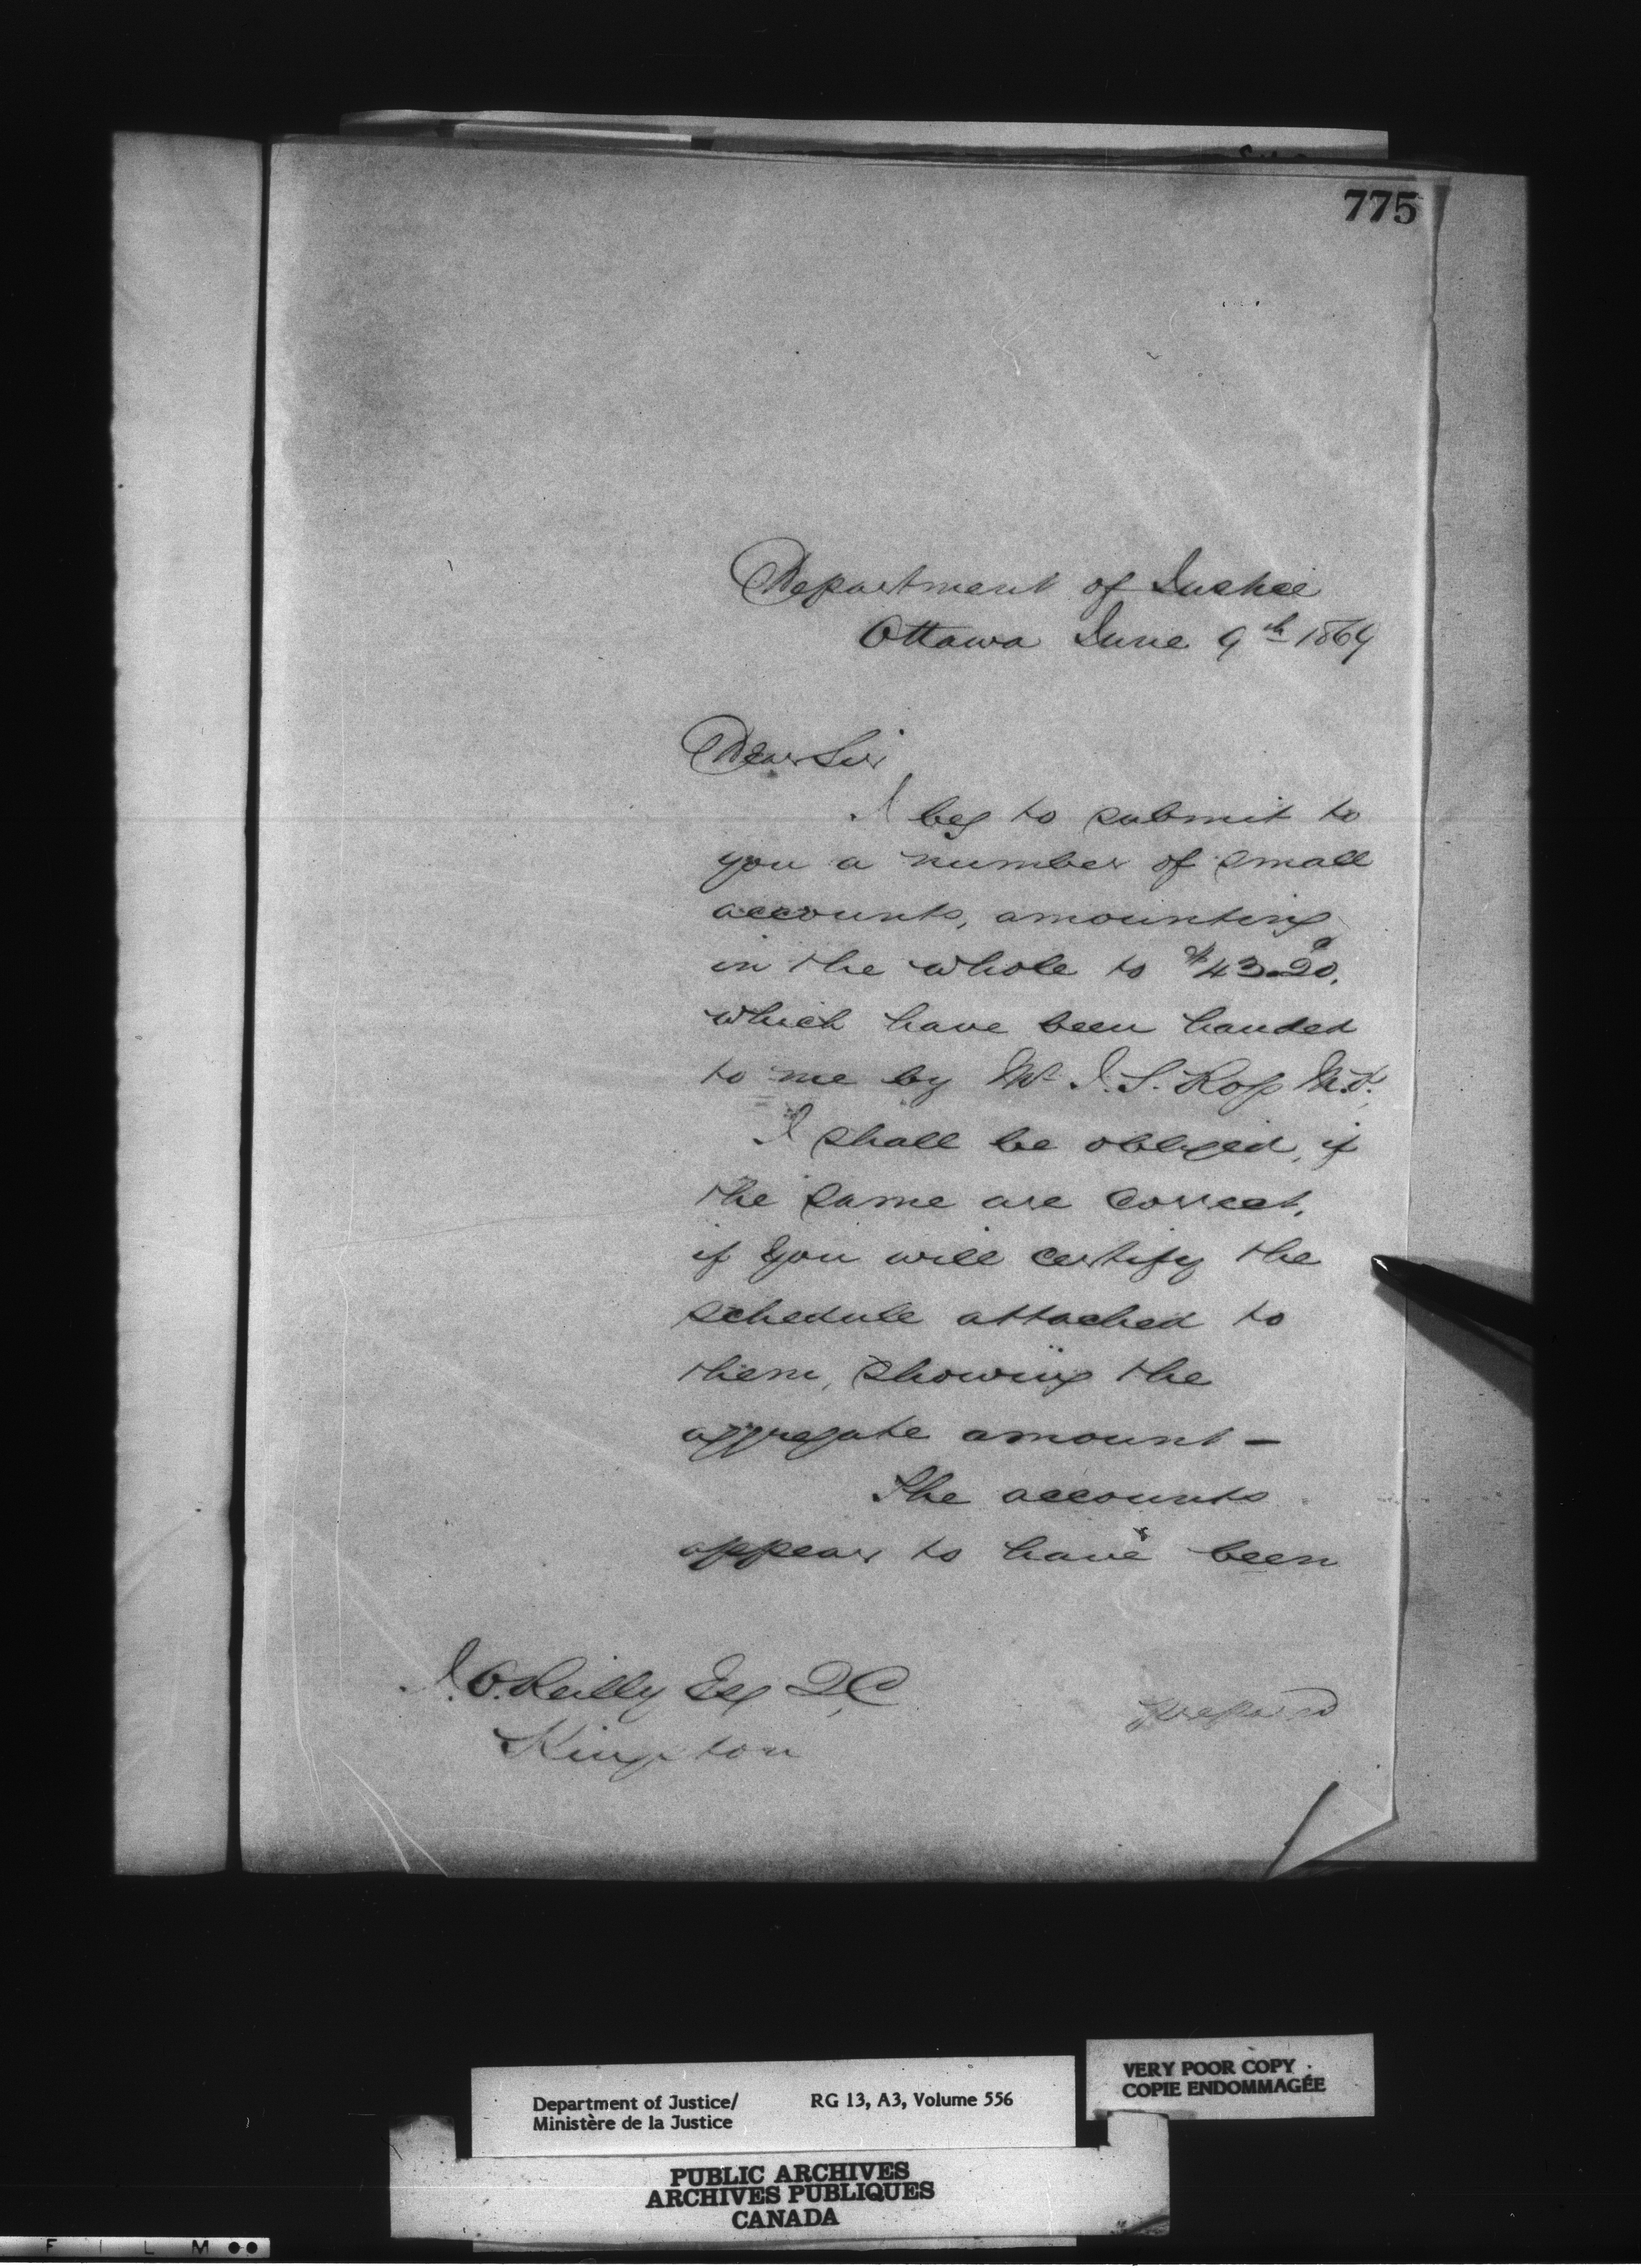 775
Department of Justice
Ottawa June 9th 1869
Dear Sir
I beg to submit to
you a number of small
accounts, amounting
in the whole to $43.20,
which have been handed
to me by Mr. J. S. Ross M.P.
I shall be obliged, if
the same are correct,
if you will certify the
schedule attached to
them, showing the
aggregate amount—
The accounts
appear to have been
J. O.Reilly Esq Q.C
Kingston
prepared
Department of Justice/ RG 13, A3, Volume 556
Ministère de la Justice
VERY POOR COPY
COPIE ENDOMMAGÉE
PUBLIC ARCHIVES
ARCHIVES PUBLIQUES
CANADA
FILM